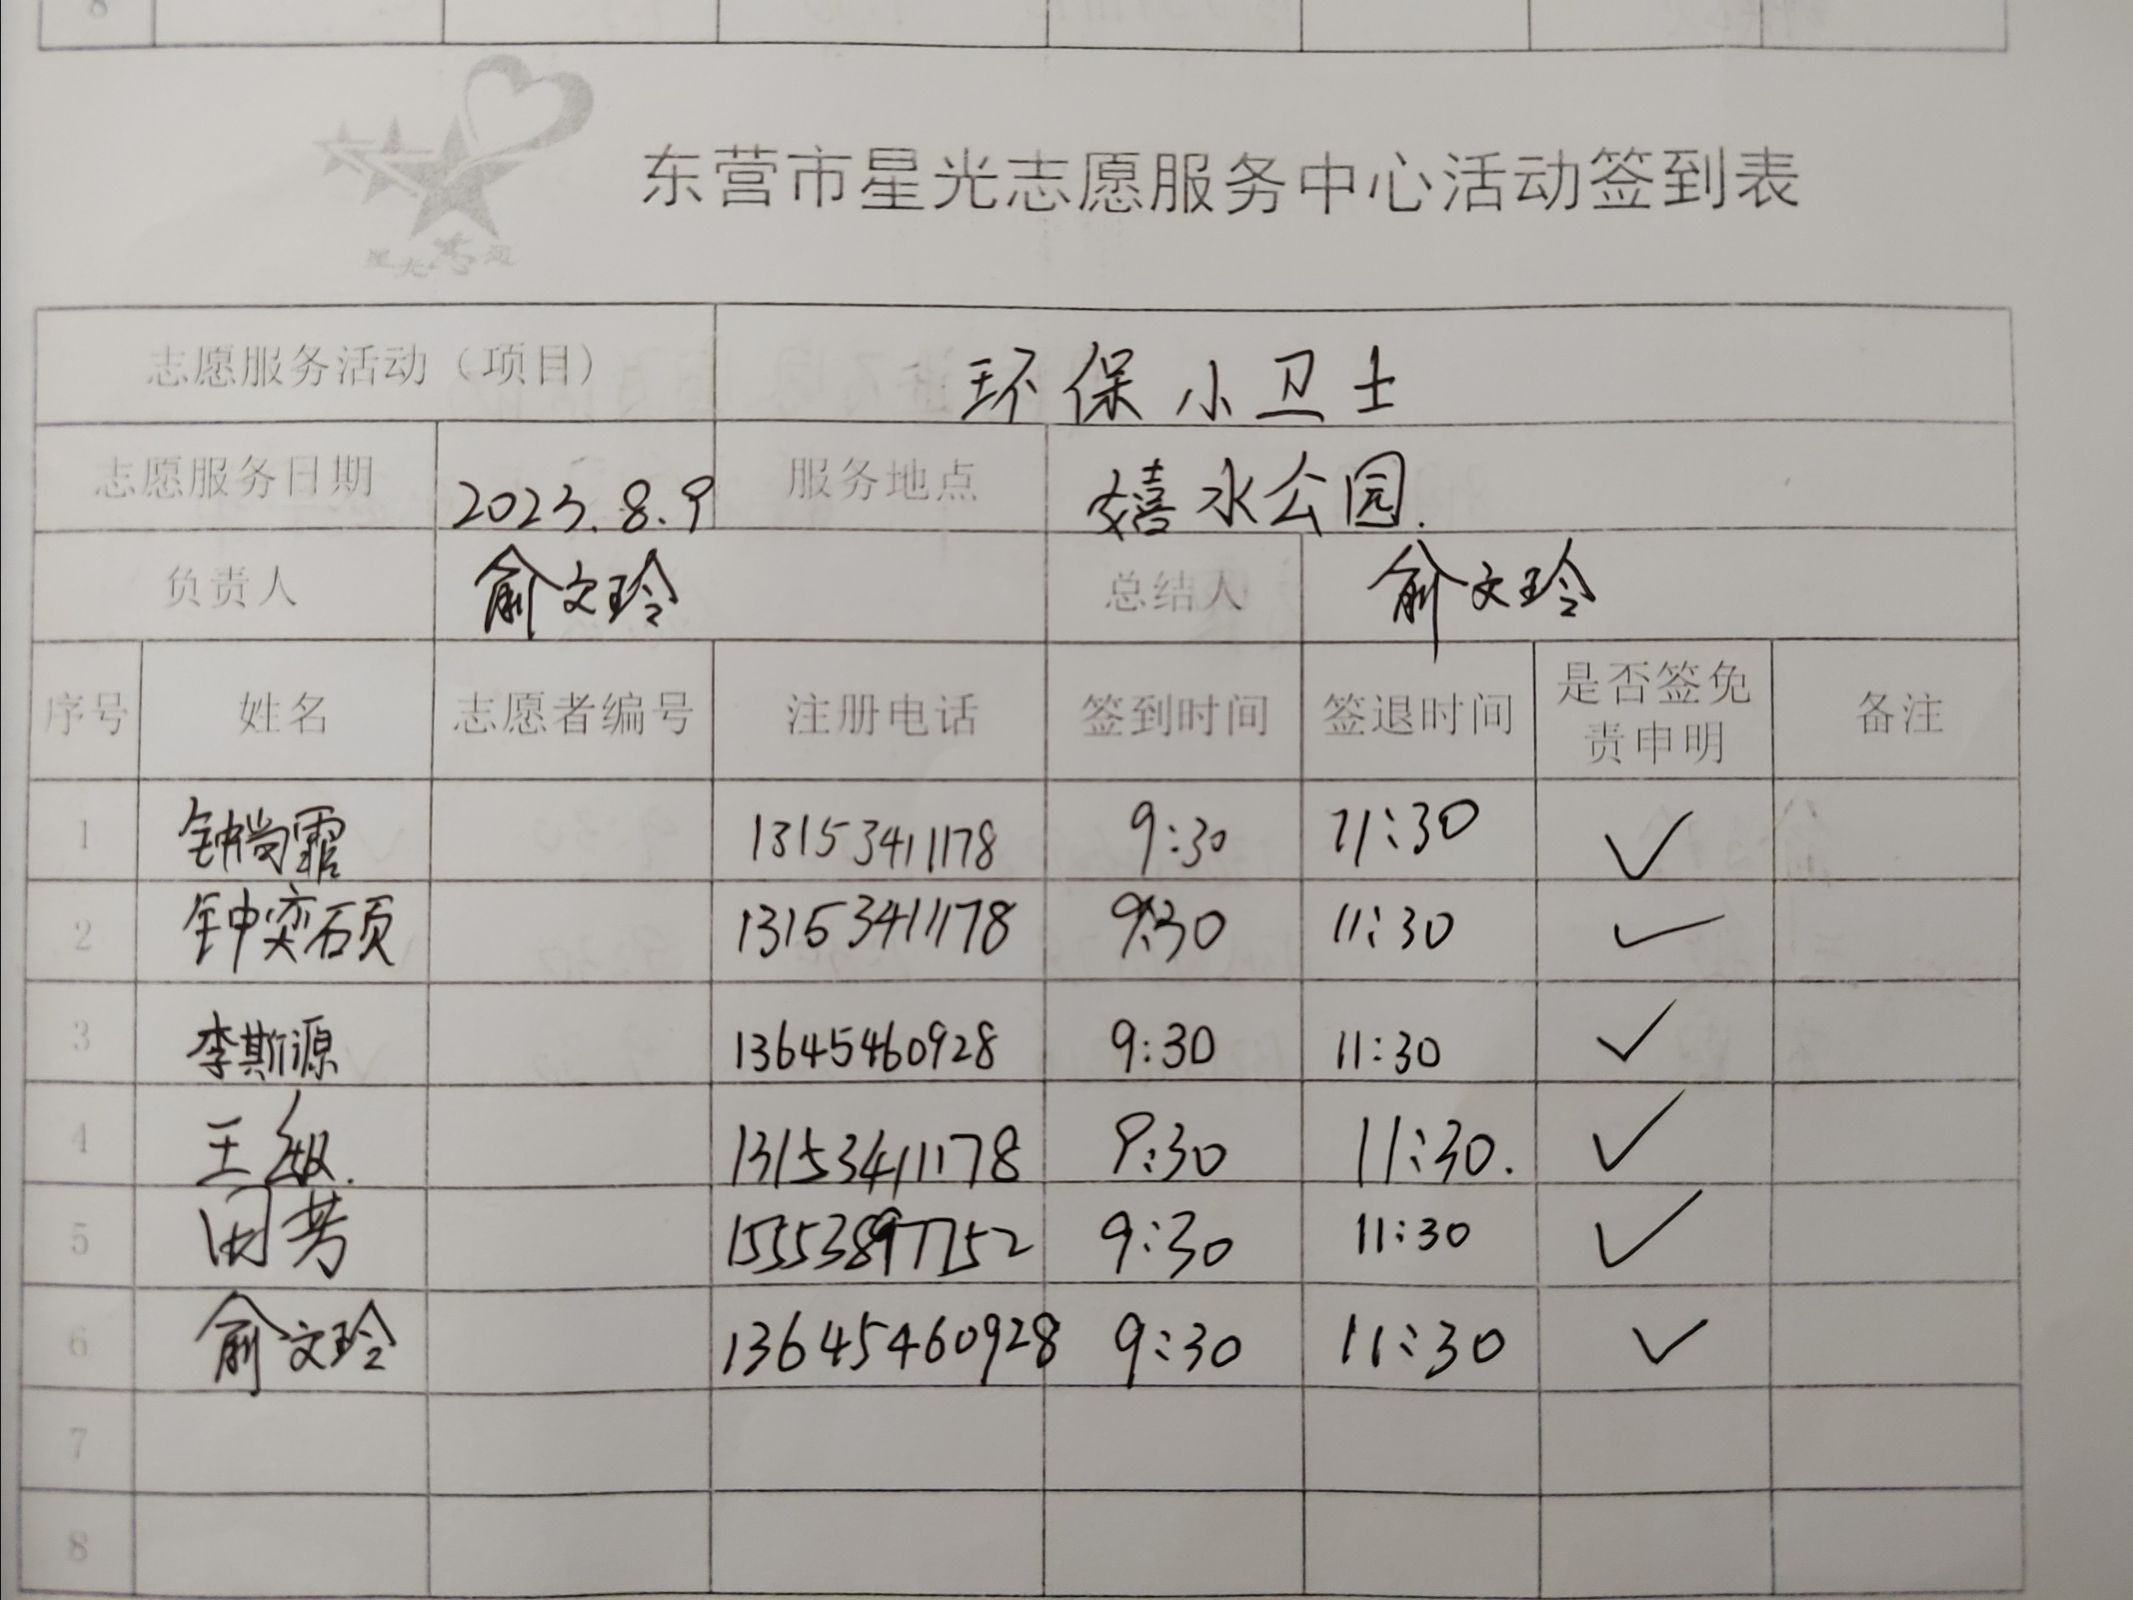 8
星光志愿
东营市星光志愿服务中心活动签到表
志愿服务活动（项目） 环保小卫士
志愿服务日期 2023.8.9 服务地点 嬉水公园.
负责人 俞文玲 总结人 俞文玲
序号 姓名 志愿者编号 注册电话 签到时间 签退时间 是否签免责申明 备注
1 钟尚霏 13153411178 9:30 11:30 ✓
2 钟奕硕 13153411178 9:30 11:30 ✓
3 李斯源 13645460928 9:30 11:30 ✓
4 王敏. 13153411178 9:30 11:30. ✓
5 周芳 15553897752 9:30 11:30 ✓
6 俞文玲 13645460928 9:30 11:30 ✓
7
8